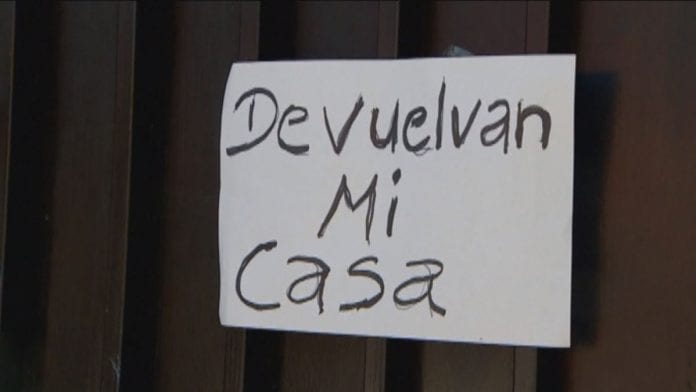 Devuelvan
Mi
Casa